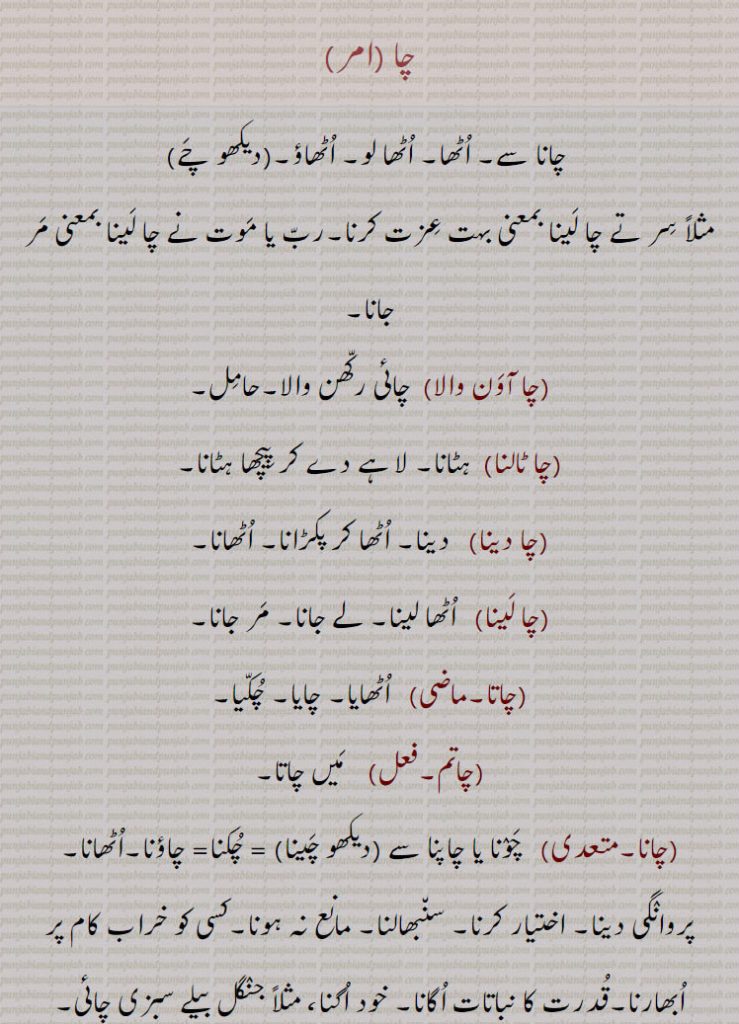 چا (امر)
چانا سے۔ اُٹھا۔ اُٹھا لو۔ اُٹھاؤ۔(دیکھو چَے)
مثلاً سِر تے چا لَینا بمعنی بہت عِزت کرنا۔ربّ یا مَوت نے چا لَینا بمعنی مَر
جانا۔
(چا آؤن والا) چائی رکّھن والا۔حامِل۔
(چا ٹالنا) ہٹانا۔ لاہے دے کر پیچھا ہٹانا۔
(چا دینا) دینا۔ اُٹھا کر پکڑانا۔ اُٹھانا۔
(چا لَینا) اُٹھا لینا۔ لے جانا۔ مَر جانا۔
(چاتا۔ماضی) اُٹھایا۔ چایا۔ چُکّیا۔
(چاتم۔فعل) مَیں چاتا۔
(چانا۔متعدی) چَوْنا یا چاپنا سے (دیکھو چَینا) = چُکنا= چاؤنا۔اُٹھانا۔
پروانگی دینا۔ اختیار کرنا۔ سنّبھالنا۔ مانع نہ ہونا۔کسی کو خراب کام پر
اُبھارنا۔قُدرت کا نباتات اُگانا۔ خود اُگنا، مثلاً جنگل بیلے سبزی چائی۔